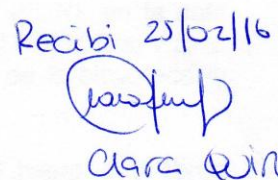 Recibi 25/02/16
Clara Quin